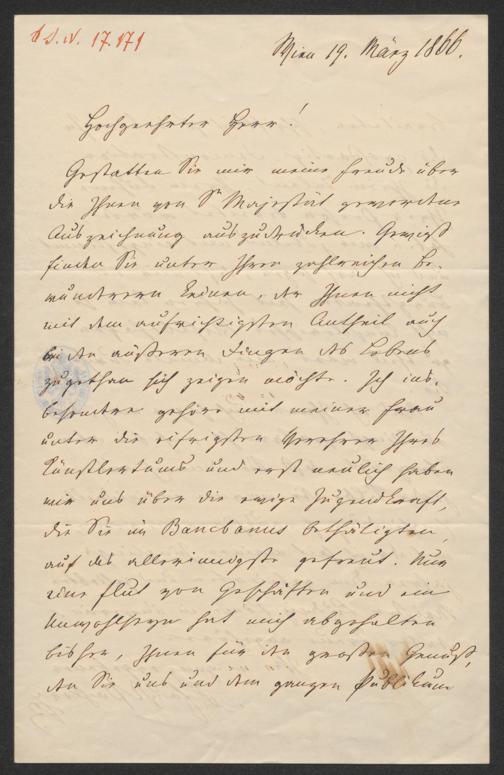 I. N. 17.171
Wien 19. März 1866.
Hochgeehrter Herr!
Gestatten Sie mir meine Freude über
die Ihnen von Sr Majestät gewordene
Auszeichnung auszudrücken. Gewiß
finden Sie unter Ihren zahlreichen Be-
wunderern Keinen, der Ihnen nicht
mit dem aufrichtigsten Antheil auch
in den äußeren Dingen des Lebens
zugethan sich zeigen möchte. Ich ins-
besondere gehöre mit meiner Frau
unter die eifrigsten Verehrer Ihres
Künstlertums und erst neulich haben
wir uns über die ewige Jugendkraft,
die Sie im Bancbanus bethätigten,
auf das allerinnigste gefreut. Nur
eine Flut von Geschäften und ein
Unwohlseyn hat mich abgehalten
bisher, Ihnen für den großen Genuß,
den Sie uns und dem ganzen Publikum